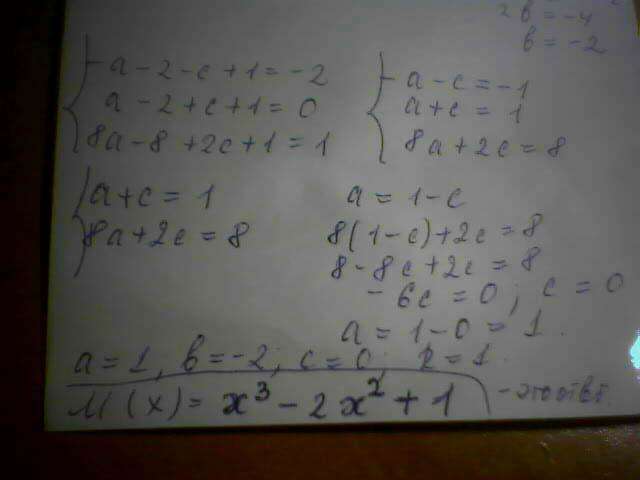 2в = -4
в = -2
-a - 2 - c + 1 = -2
a - 2 + c + 1 = 0
8a - 8 + 2c + 1 = 1
-a - c = -1
a + c = 1
8a + 2c = 8
a + c = 1
8a + 2c = 8
a = 1 - c
8(1 - c) + 2c = 8
8 - 8c + 2c = 8
-6c = 0; c = 0
a = 1 - 0 = 1.
a = 1, в = -2; c = 0; k = 1.
M(x) = x³ - 2x² + 1 - это ответ.